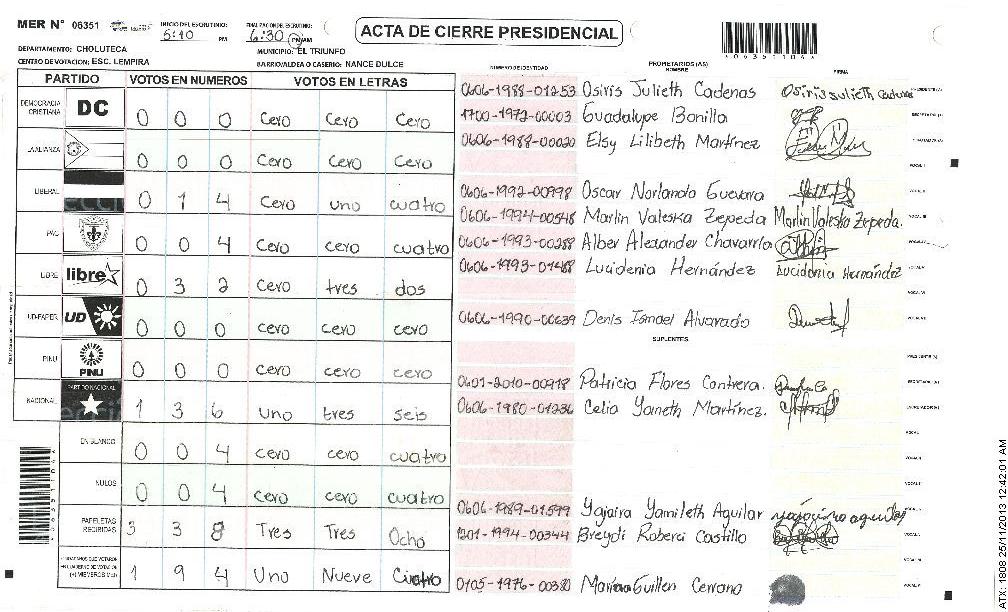 MER N° 06351
INICIO DEL ESCRUTINIO: 5:10 PM
FINALIZACION DEL ESCRUTINIO: 6:30 PM/AM
ACTA DE CIERRE PRESIDENCIAL
06351104
DEPARTAMENTO: CHOLUTECA
MUNICIPIO: EL TRIUNFO
CENTRO DE VOTACION: ESC. LEMPIRA
BARRIO/ALDEA O CASERIO: NANCE DULCE
PARTIDO VOTOS EN NUMEROS VOTOS EN LETRAS
DEMOCRACIA CRISTIANA DC 0 0 0 Cero Cero Cero
LA ALIANZA 0 0 0 Cero Cero Cero
LIBERAL 0 1 4 Cero uno cuatro
PAC 0 0 4 Cero cero cuatro
LIBRE libre 0 3 2 Cero tres dos
UD-FAPER UD 0 0 0 cero Cero cero
PINU PINU 0 0 0 cero cero cero
NACIONAL PARTIDO NACIONAL 1 3 6 Uno tres seis
EN BLANCO 0 0 4 cero cero cuatro
NULOS 0 0 4 cero cero cuatro
PAPELETAS RECIBIDAS 3 3 8 Tres Tres Ocho
1 9 4 Uno Nueve Cuatro
NUMERO DE IDENTIDAD PROPIETARIOS (AS) NOMBRE FIRMA
0606-1988-01253 Osiris Julieth Cadenas Osiris Julieth Cadenas
1700-1972-00003 Guadalupe Bonilla
0606-1988-00020 Elsy Lilibeth Martínez
0606-1992-00998 Oscar Norlando Guevara
0606-1994-00548 Marlin Valeska Zepeda Marlin Valeska Zepeda.
0606-1993-00288 Alber Alexander Chavarría
0606-1993-01488 Lucidenia Hernández Lucidenia Hernández
0606-1990-00639 Denis Ismael Alvarado
SUPLENTES
0601-2010-00918 Patricia Flores Contrera.
0606-1980-01236 Celia Yaneth Martínez.
0606-1989-01599 Yajaira Yamileth Aguilar
1201-1994-00344 Breydi Roberci Castillo
0105-1976-00380 Guillen Cerrano
ATX: 1808 25/11/2013 12:42:01 AM